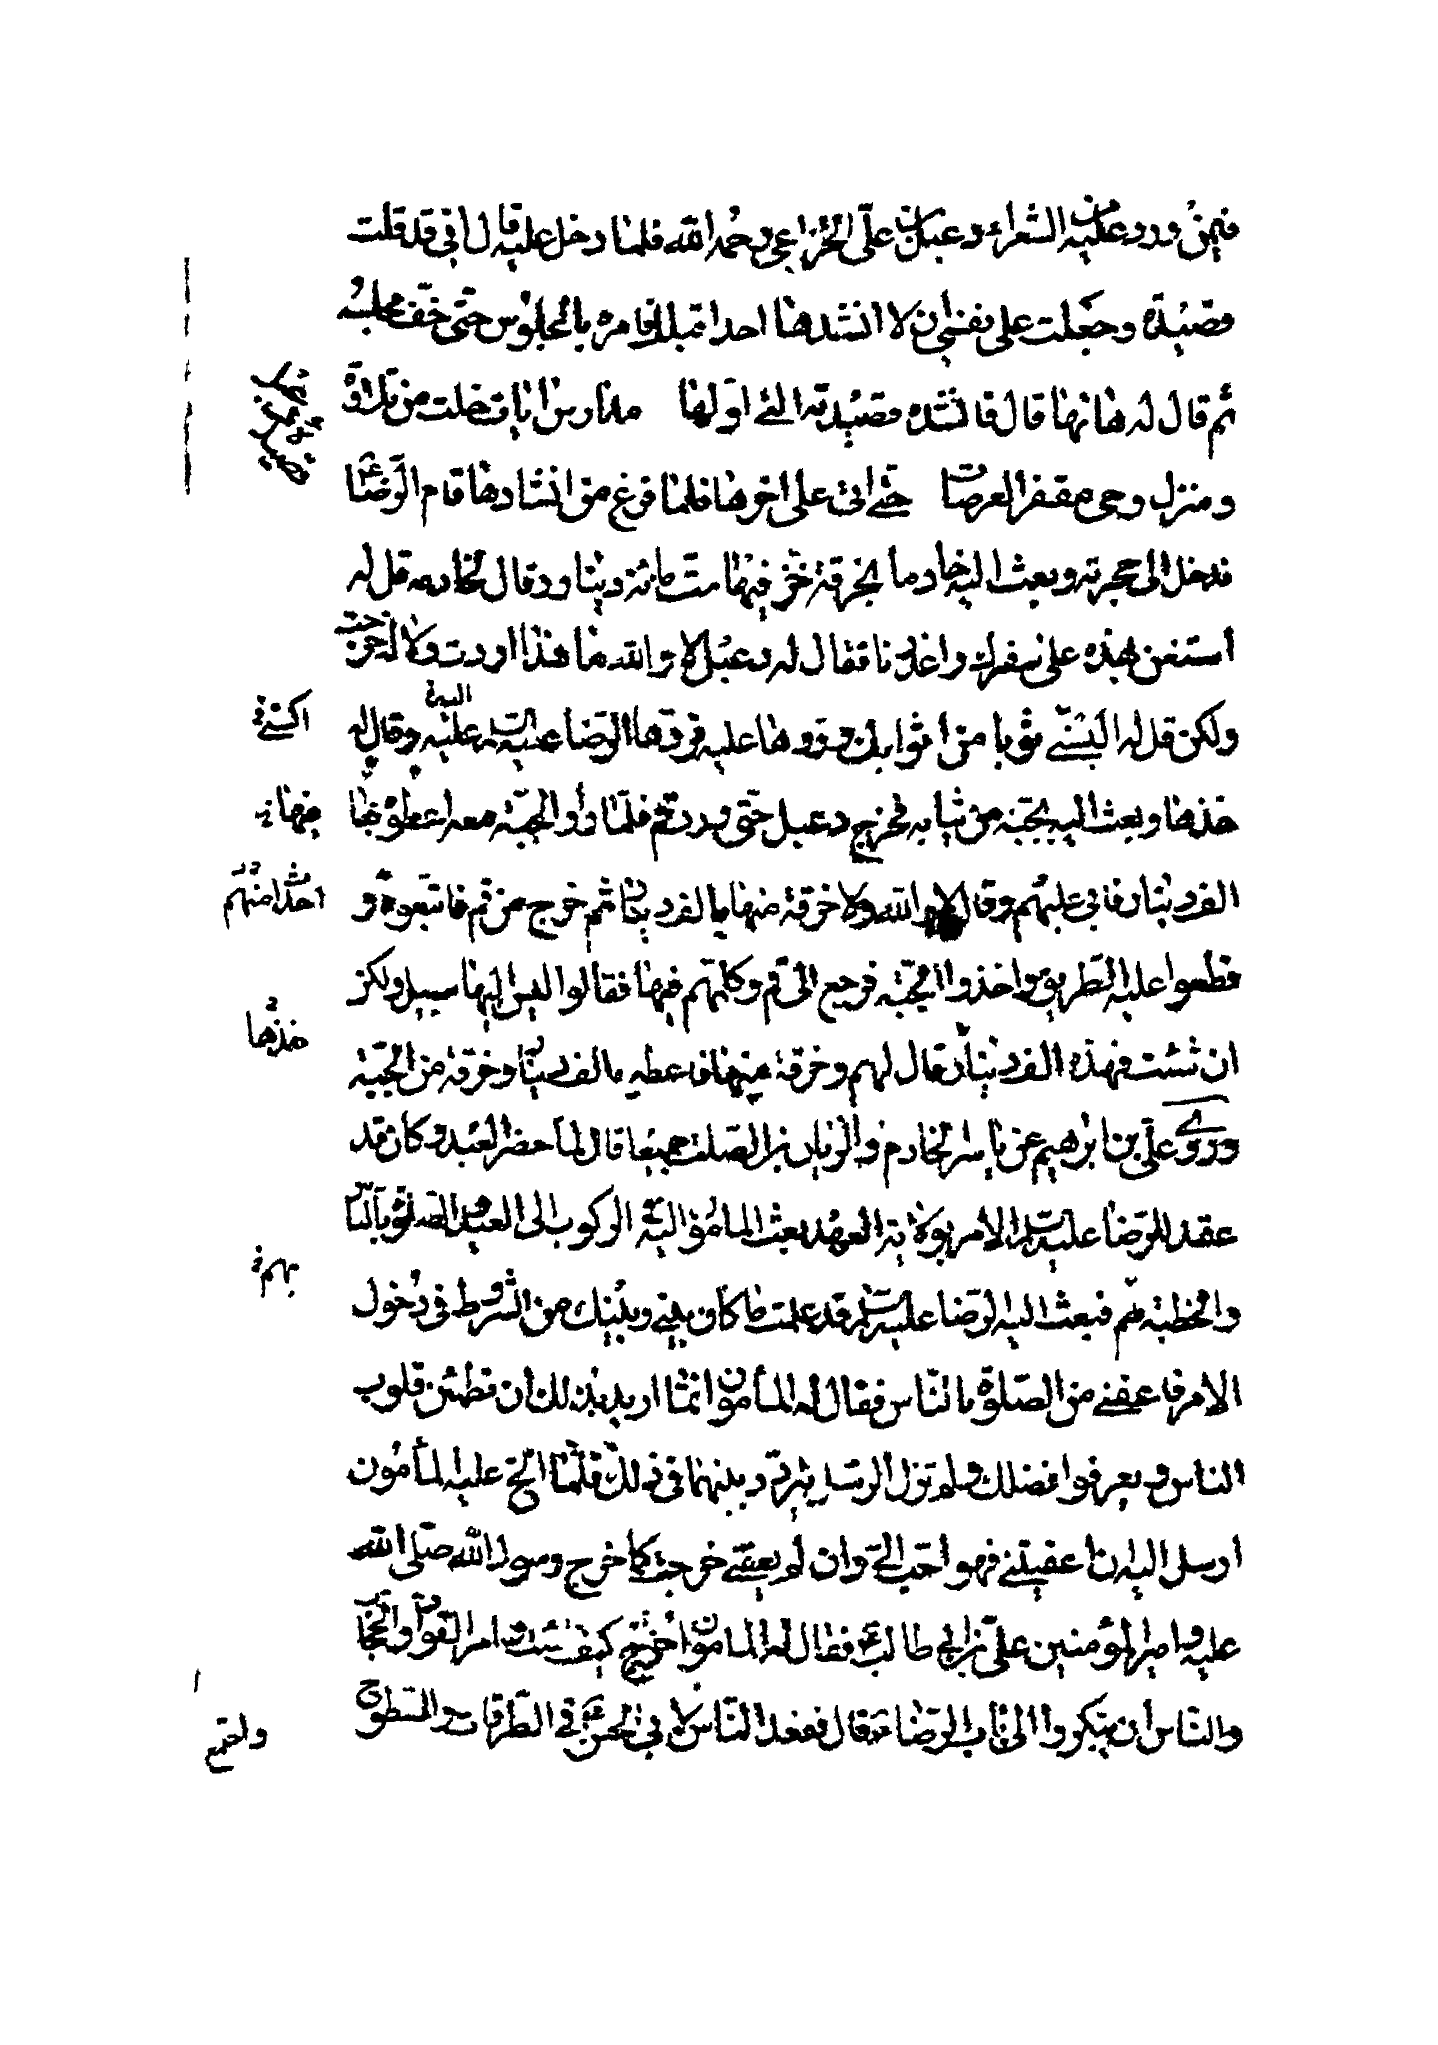 فيمن ورد عليه من الشعراء دعبل بن علي الخزاعي رحمه الله فلما دخل عليه قال اني قد قلت
قصيدة وجعلت على نفسي ان لا انشدها احدا قبلك فامره بالجلوس حتى خف مجلسه
ثم قال له هاتها قال فانشده قصيدته التي اولها مدارس ايات خلت من تلاوة
ومنزل وحي مقفر العرصات حتى اتى على اخرها فلما فرغ من انشادها قام الرضا ع
فدخل الى حجرته وبعث اليه خادما بخرقة خز فيها ستمائة دينار وقال لخادمه قل له
استعن بهذه على سفرك واعذرنا فقال له دعبل لا والله ما هذا اردت ولا له خرجت
ولكن قل له البسني ثوبا من اثوابك وردها عليه فردها الرضا عليه السلم عليه وقال له
اكسني
خذها وبعث اليه بجبة من ثيابه فخرج دعبل حتى ورد قم فلما راوا الجبة معه اعطوه بها
الف دينار فابى عليهم وقال لا والله ولا خرقة منها بالف دينار ثم خرج من قم فاتبعوه و
قطعوا عليه الطريق واخذوا الجبة فرجع الى قم وكلمهم فيها فقالوا ليس اليها سبيل ولكن
ان شئت فهذه الف دينار قال لهم وخرقة منها فاعطوه الف دينار وخرقة من الجبة
خذها
وروى علي بن ابرهيم عن ياسر الخادم والريان بن الصلت جميعا قال لما حضر العيد وكان قد
عقد للرضا عليه السلم الامر بولاية العهد بعث المامون اليه في الركوب الى العيد والصلوة بالناس
والخطبة بهم فبعث اليه الرضا عليه السلم قد علمت ما كان بيني وبينك من الشروط في دخول
بهم
الامر فاعفني من الصلوة بالناس فقال له المأمون انما اريد بذلك ان تطمئن قلوب
الناس ويعرفوا فضلك ولم تزل الرسل تتردد بينهما في ذلك فلما الح عليه المأمون
ارسل اليه ان اعفيتني فهو احب الي وان لم تعفني خرجت كما خرج رسول الله صلى الله
عليه وامير المؤمنين علي بن ابي طالب ع فقال له المامون اخرج كيف شئت وامر القواد والحجاب
والناس ان يبكروا الى باب الرضا ع قال فقعد الناس لابي الحسن ع في الطرقات والسطوح